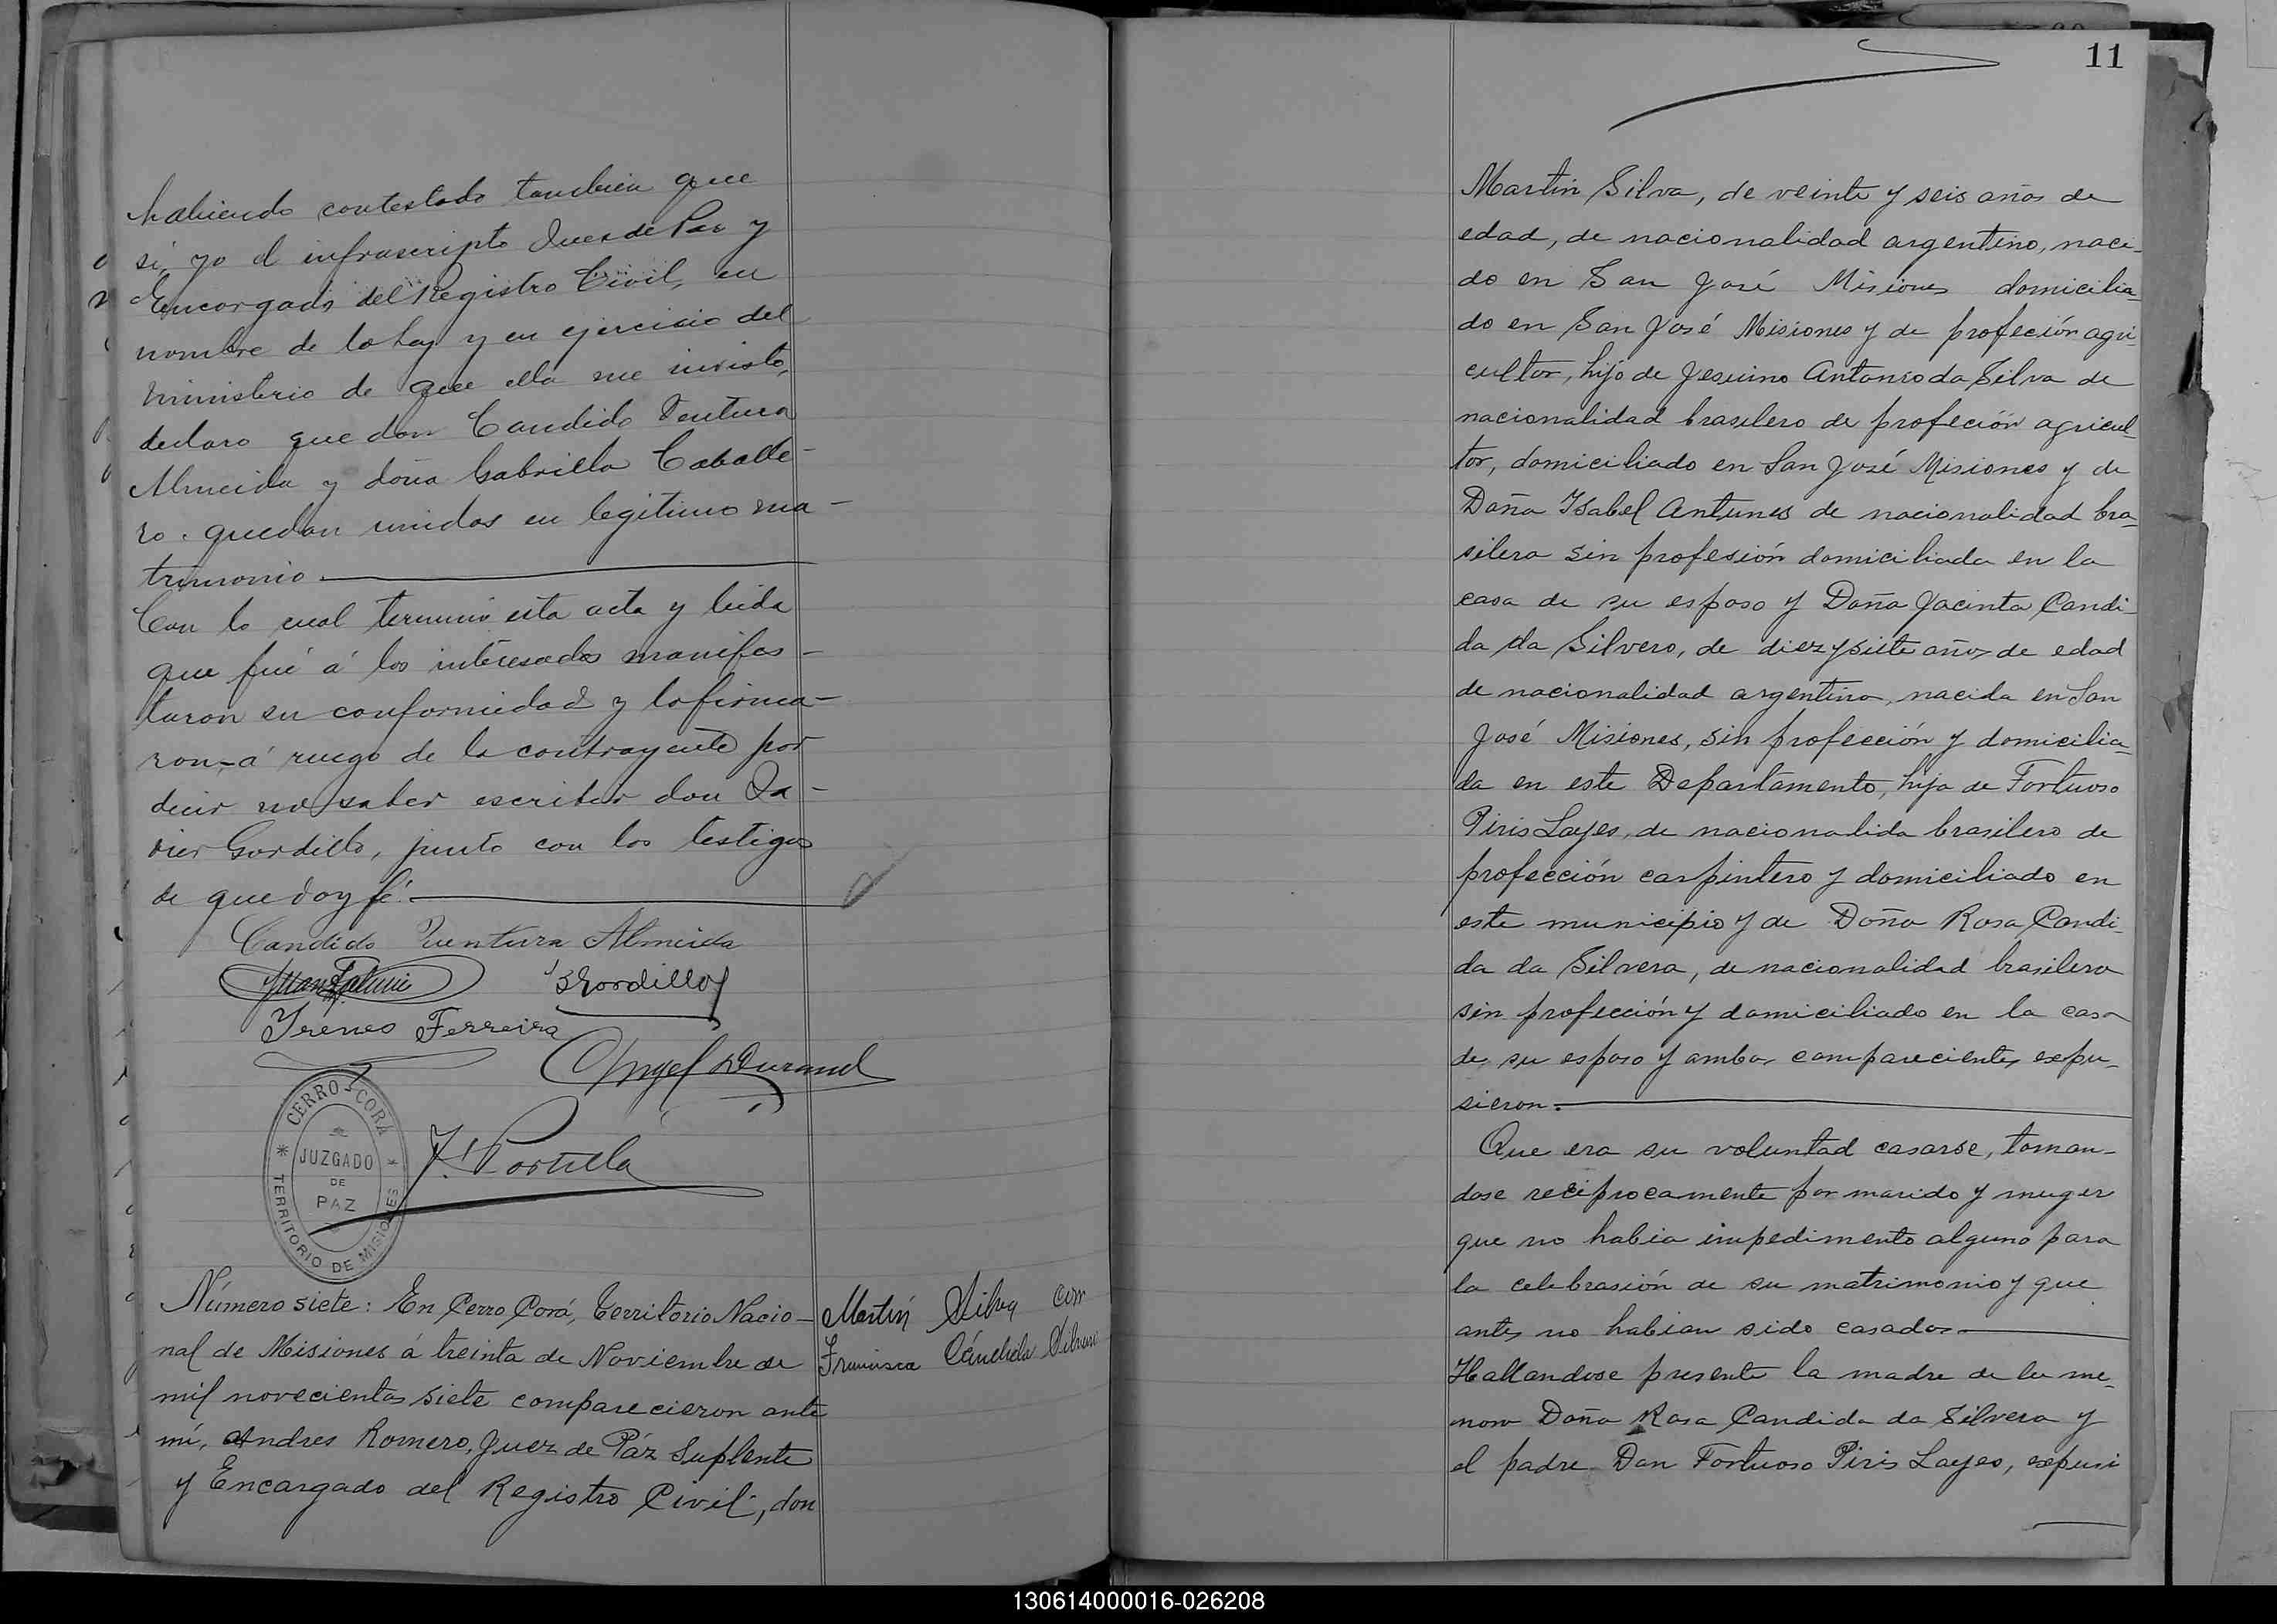 habiendo contestado tambien que
si, yo el infrascripto Juez de Paz y
Encargado del Registro Civil, en
nombre de la Ley y en ejercicio del
ministerio de que ella me inviste,
declaro que don Candido Ventura
Almeida y doña Gabriela Caballe-
ro. quedan unidos en legitimo ma-
trimonio.
Con lo cual terminó esta acta y leida
que fué á los interesados manifes-
taron su conformidad y la firma-
ron, á ruego de la contrayente por
decir no saber escribir don Ja-
vier Gordillo, junto con los testigos
de que doy fé.
Candido Ventura Almeida
Gordillo
Irenes Ferreira
Angel Durand
J. Portela
CERRO CORÁ
JUZGADO
DE
PAZ
TERRITORIO DE MISIONES
Número siete: En Cerro Corá, Territorio Nacio-
nal de Misiones á treinta de Noviembre de
mil novecientos siete comparecieron ante
mí, Andres Romero, Juez de Páz Suplente
y Encargado del Registro Civil, don
Martín Silva con
Francisca Cándida Silvero
11
Martin Silva, de veinte y seis años de
edad, de nacionalidad argentino, naci-
do en San José Misiones domicilia-
do en San José Misiones y de profeción agri-
cultor, hijo de Jesuino Antonio da Silva de
nacionalidad brasilero de profeción agricul-
tor, domiciliado en San José Misiones y de
Doña Isabel Antunes de nacionalidad bra-
silera sin profesión domiciliada en la
casa de su esposo y Doña Jacinta Candi-
da da Silvero, de diez y siete años de edad
de nacionalidad argentina, nacida en San
José Misiones, sin profección y domicilia-
da en este Departamento, hija de Fortuoso
Piris Layes, de nacionalida brasilero de
profección carpintero y domiciliado en
este municipio y de Doña Rosa Candi-
da da Silvera, de nacionalidad brasilera
sin profección y domiciliado en la casa
de su esposo y ambos comparecientes expu-
sieron.
Que era su voluntad casarse, toman-
dose reciprocamente por marido y muger
que no habia impedimento alguno para
la celebrasión de su matrimonio y que
antes no habian sido casados
Hallandose presente la madre de la me-
nor Doña Rosa Candida da Silvera y
el padre Don Fortuoso Piris Layes, expusi
130614000016-026208